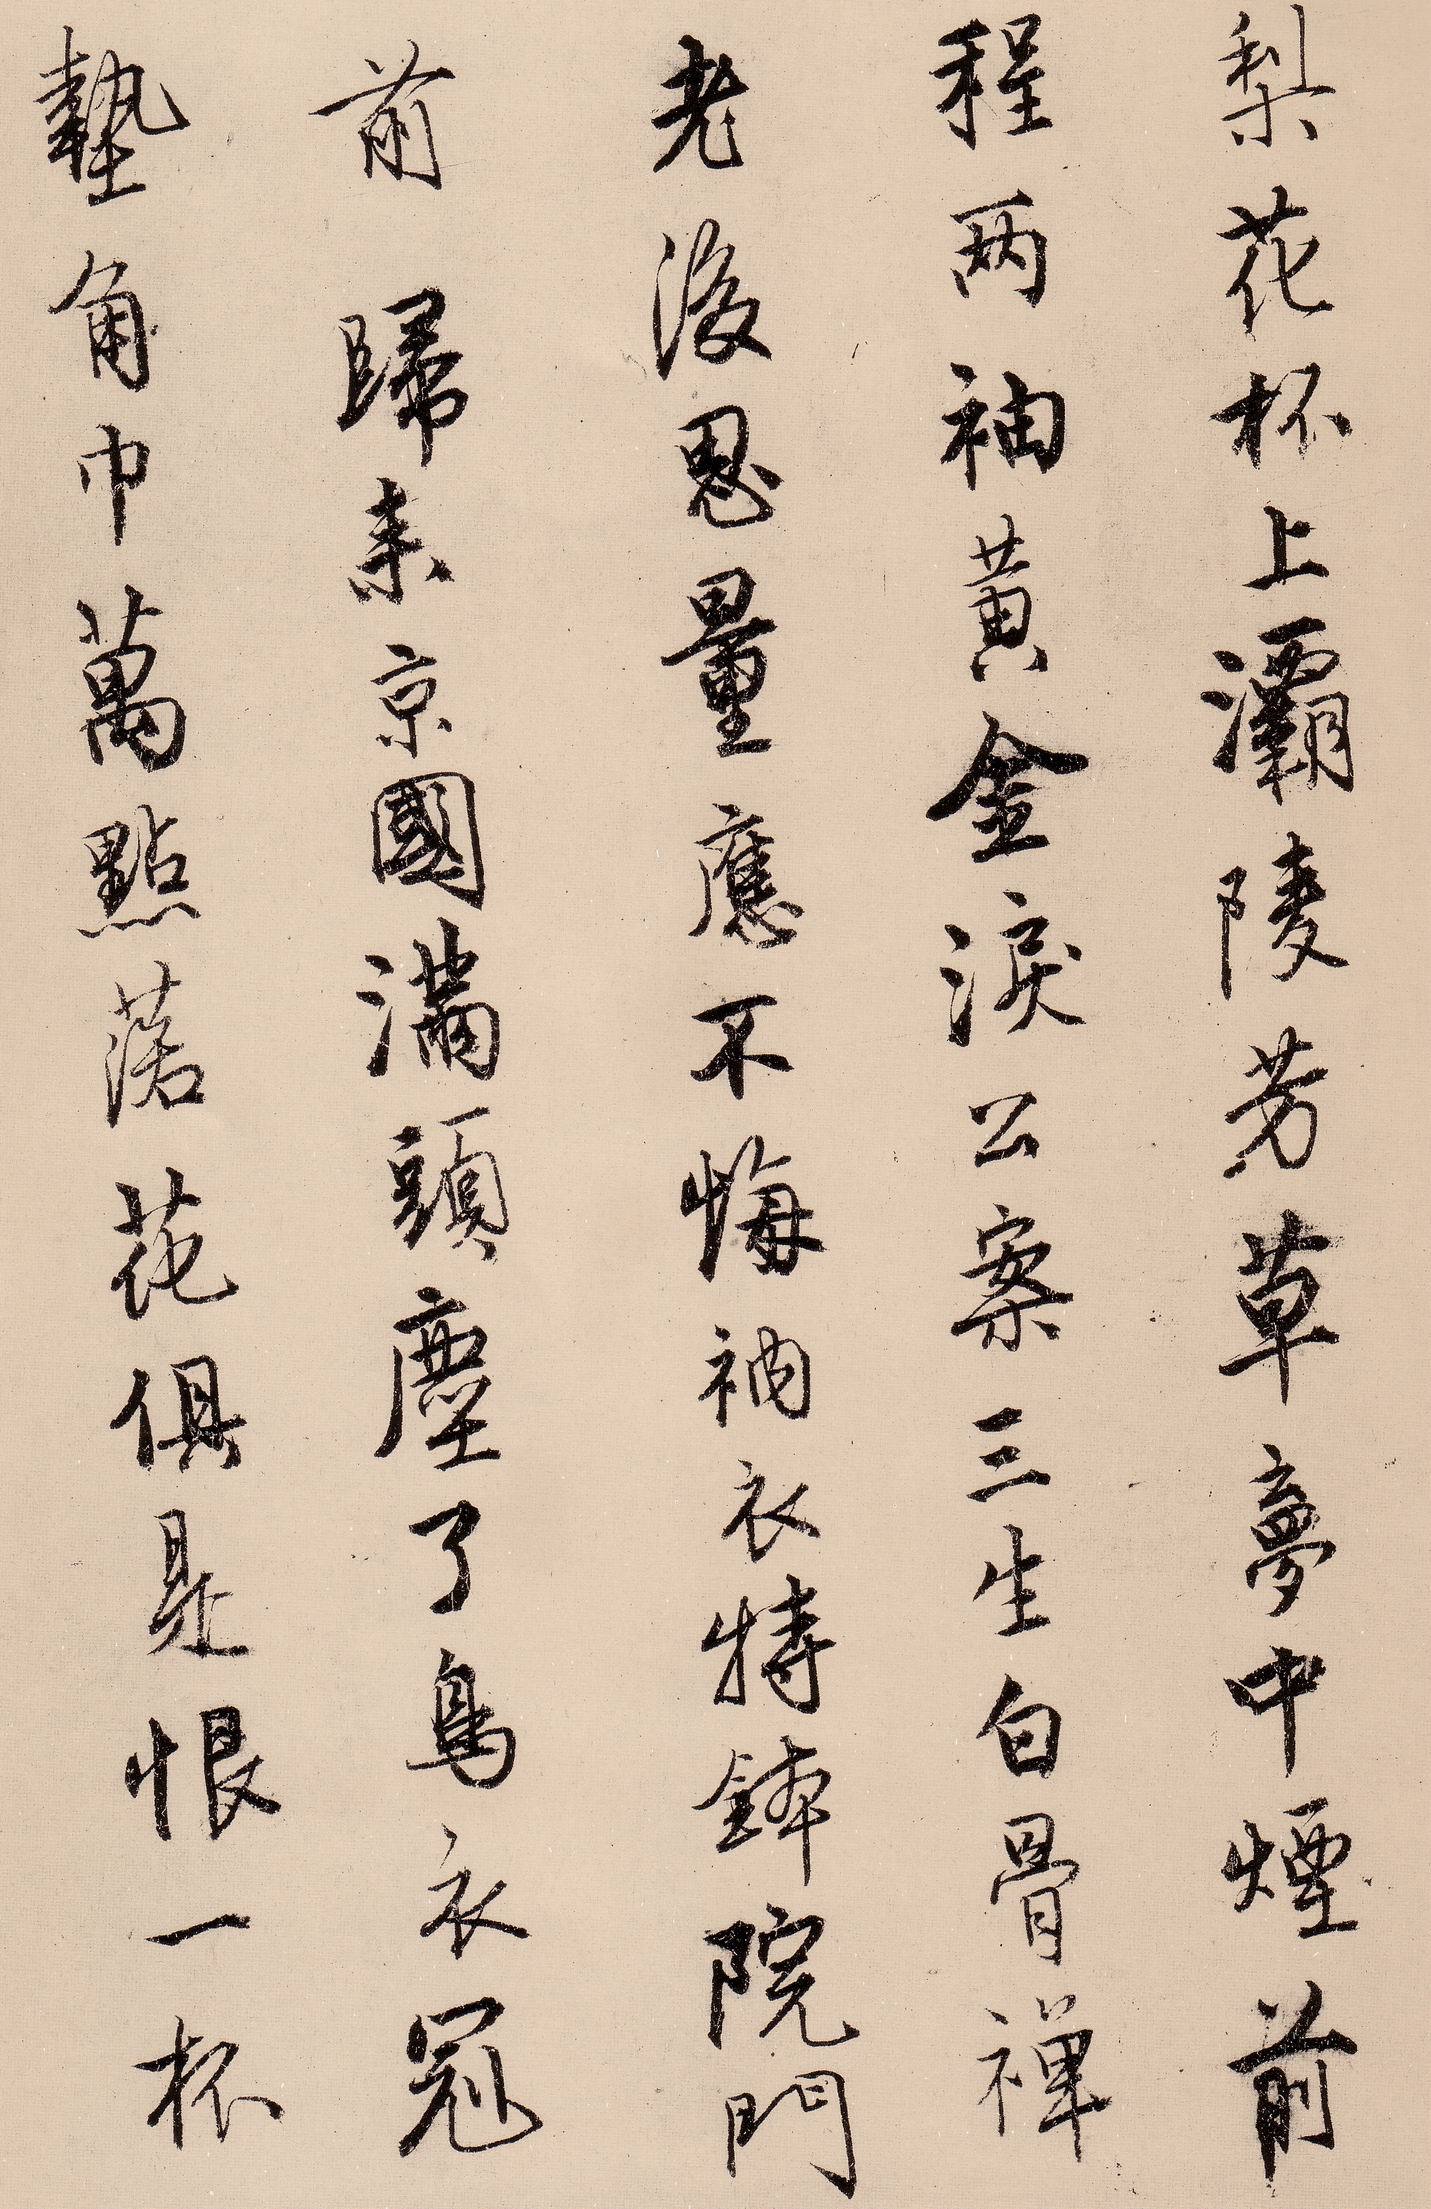 梨花杯上灞陵芳草夢中煙前
程两袖黄金淚公案三生白骨禅
老後思量應不悔衲衣持鉢院門
前 歸来京國滿頭塵了鳥衣冠
墊角巾萬點落花俱是恨一杯